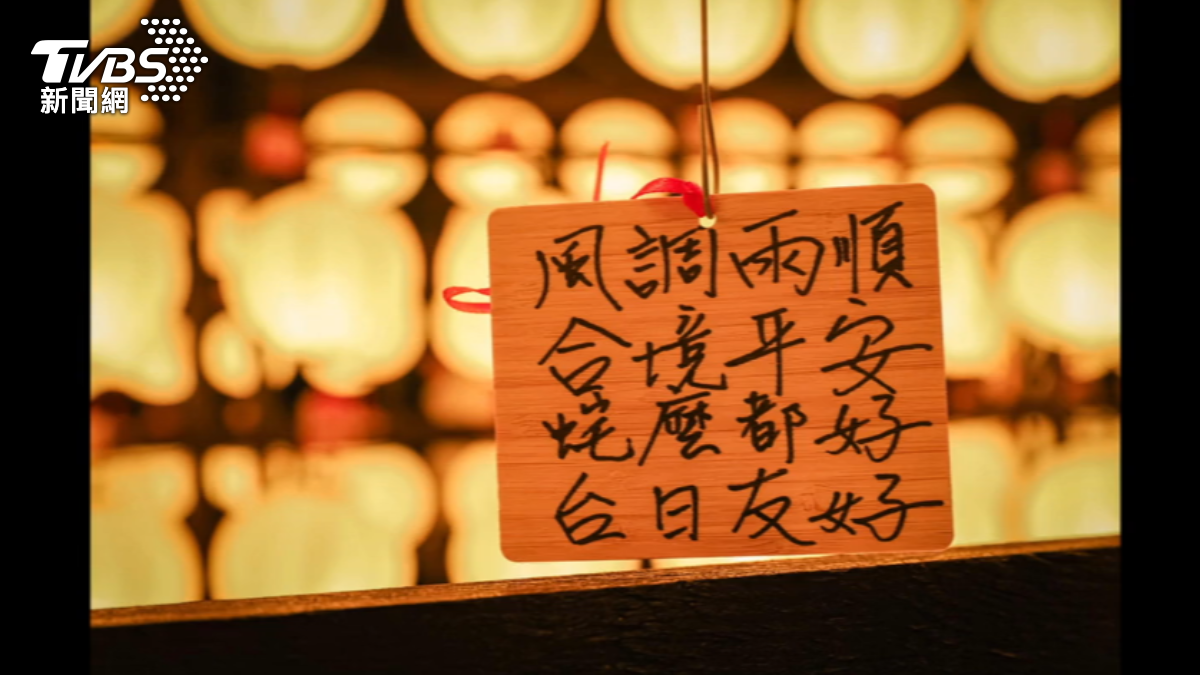 TVBS
新聞網
風調雨順
合境平安
蛇麼都好
台日友好